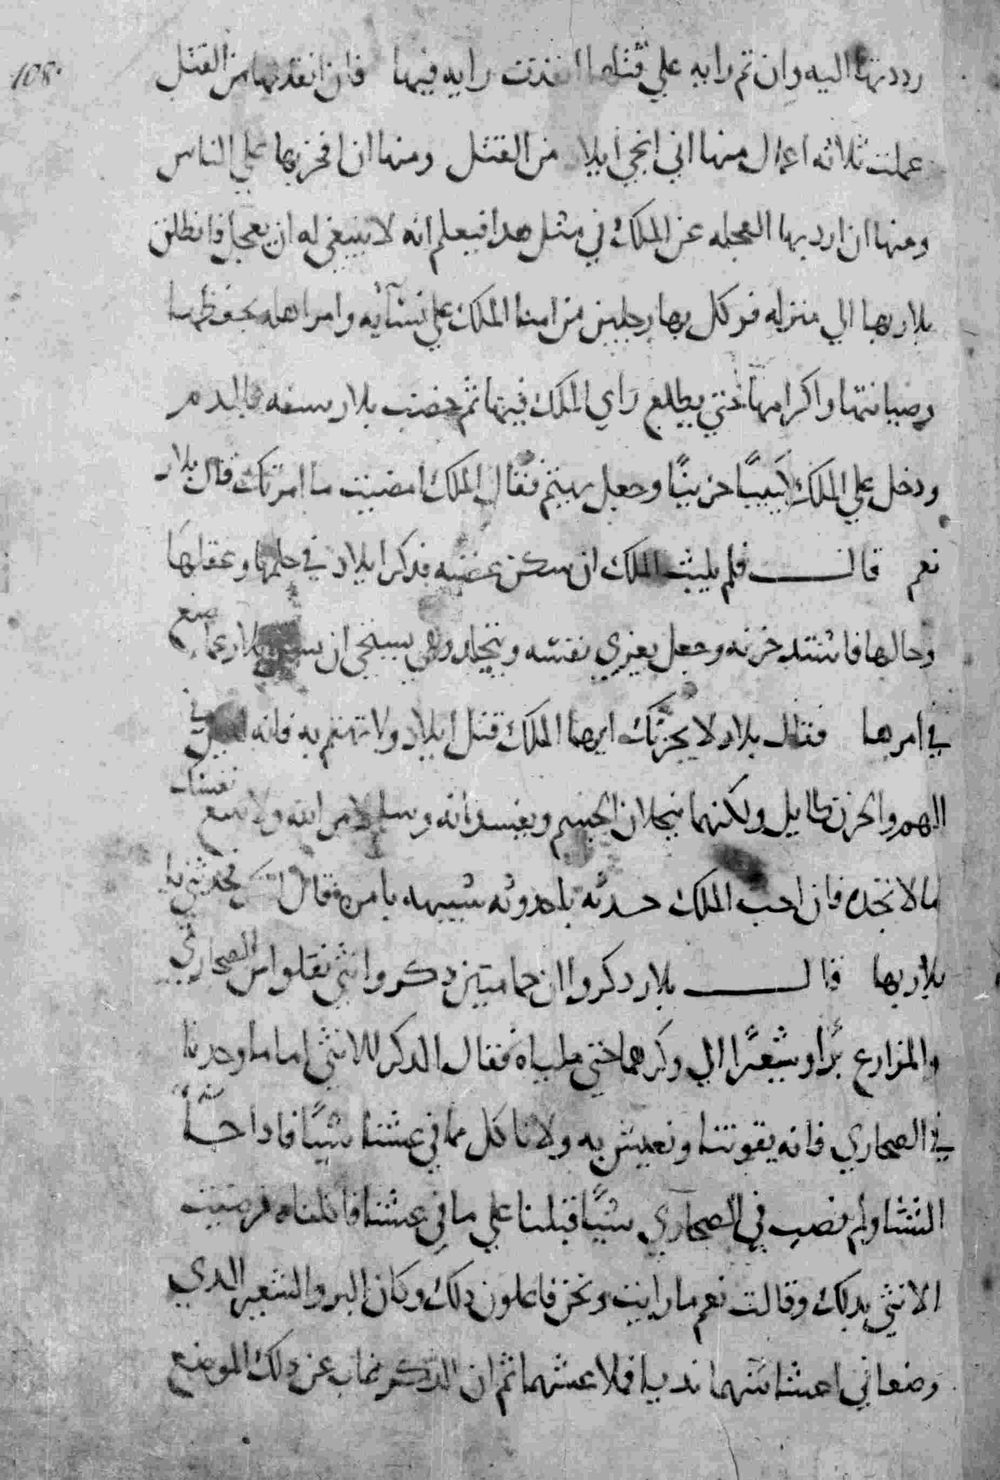 108
رددتها اليه وان تم رايه علي قتلها انفذت رايه فيها فان انقذتها من القتل
عملت ثلاثه اعمال منها اني انجي ايلاد من القتل ومنها ان افخر بها علي الناس
ومنها ان ارد بها العجله عن الملك في مثل هدا فيعلم انه لا ينبغي له ان يعجل فانطلق
بلار بها الي منزله فوكل بها رجلين من امنا الملك علي نسآيه وامر اهله بحفظها
وصيانتها واكرامها حتي يطلع راي الملك فيها ثم خضب بلار سيفه بالدم
ودخل علي الملك كييبًا حزينًا وجعل يهتم فقال الملك امضيت ما امرتك قال بلار
نعم قال فلم يلبث الملك ان سكن غضبه فدكر ايلاد في حلمها وعقلها
وحالها فاشتد حزنه وجعل يعزي نفسه ويتجلد وهو يستحي ان بلار عما صنع
في امرها فقال بلار لا يحزنك ايها الملك قتل ايلاد ولا تهتم به فانه ليس في
الهم والحزن طايل ولكنهما ينحلان الجسم ويفسدانه وسلم لامر الله ولا تتبع نفسك
ما لا تجده فان احب الملك حدثه باحدوثه شبيهه بامره فقال الملك حدثني يا
بلار بها قال بلار دكروا ان حمامتين دكر وانثي نقلوا من الصحاري
والمزارع برًا وشعيرًا الي وكرهما حتي ملياه فقال الدكر للانثي اما ما وجدنا
في الصحاري فانه يقوتنا ونعيش به ولا ناكل مما في عشنا شيًا فادا جآ
الشتا ولم نصب في الصحاري شيًا قبلنا علي ما في عشنا فاكلناه فرضيت
الانثي بدلك وقالت نعم ما رايت ونحن فاعلون دلك وكان البر والشعير الدي
وضعا في اعشاشهما نديا فملا عشهما ثم ان الدكر غاب عن دلك الموضع